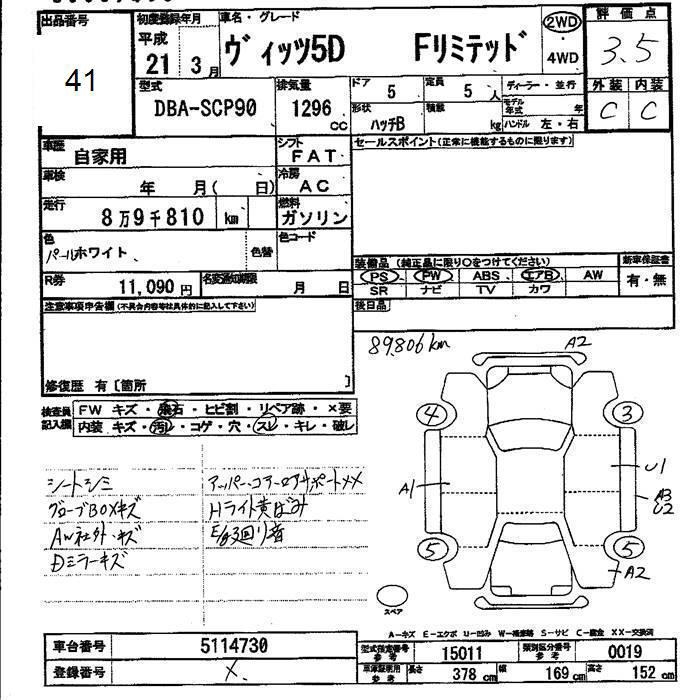 出品番号 初度登録年月 車名・グレード 評価点
41 平成 21 3月 ヴィッツ5D Fリミテッド 2WD 4WD 3.5
型式 排気量 ドア 5 定員 5人 ディーラー・並行 外装 内装
DBA-SCP90 1296 cc 形状 ハッチB 積載 kg モデル年式 年 ハンドル 左・右 C C
車歴 自家用 シフト FAT セールスポイント(正常に機能するものに限ります)
車検 年 月( 日) 冷房 AC
走行 8万9千810 km 燃料 ガソリン
色 パールホワイト 色替 色コード 装備品 (純正品に限り○をつけてください) 新車保証書
PS PW ABS エアB AW 有・無
R券 11,090円 名変通知期限 月 日 SR ナビ TV カワ
注意事項申告欄(不具合内容等は具体的に記入して下さい) 後日品
89,806km A2
修復歴 有〔箇所 〕
検査員記入欄 FW キズ・飛石・ヒビ割・リペア跡・×要
内装 キズ・汚レ・コゲ・穴・スレ・キレ・破レ
4 3
A1 U1
A3
U2
5 5
A2
シートシミ アッパーコアーロアサポートXX
グローブBOXキズ Hライト黄ばみ
AW社外・キズ E/g廻り音
Dミラーキズ
スペア
A-キズ E-エクボ U-凹み W-補修跡 S-サビ C-腐食 XX-交換済
車台番号 5114730 型式指定番号 参考 15011 類別区分番号 参考 0019
登録番号 X 車庫証明用 参考 長さ 378 cm 幅 169 cm 高さ 152 cm